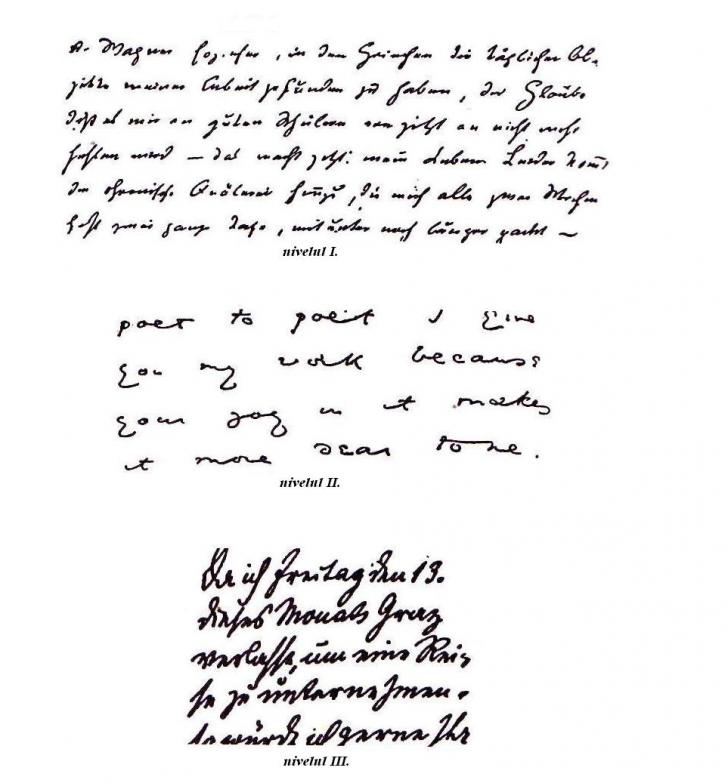 in den Griechen die täglichen
meiner Arbeit gefunden zu haben, der Glaube
daß es mir an guten Schülern von jetzt an nicht mehr
fehlen wird — das macht jetzt mein Leben. Leider kommt
die chronische Quälerei hinzu, die mich alle zwei Wochen
zwei ganze Tage, mitunter noch länger packt —
nivelul I.
poet to poet I give
you my work because
your joy in it makes
it more dear to me.
nivelul II.
Da ich Freitag den 13.
dieses Monats Graz
verlasse, um eine Rei-
se zu unternehmen.
würde ich gerne Ihr
nivelul III.